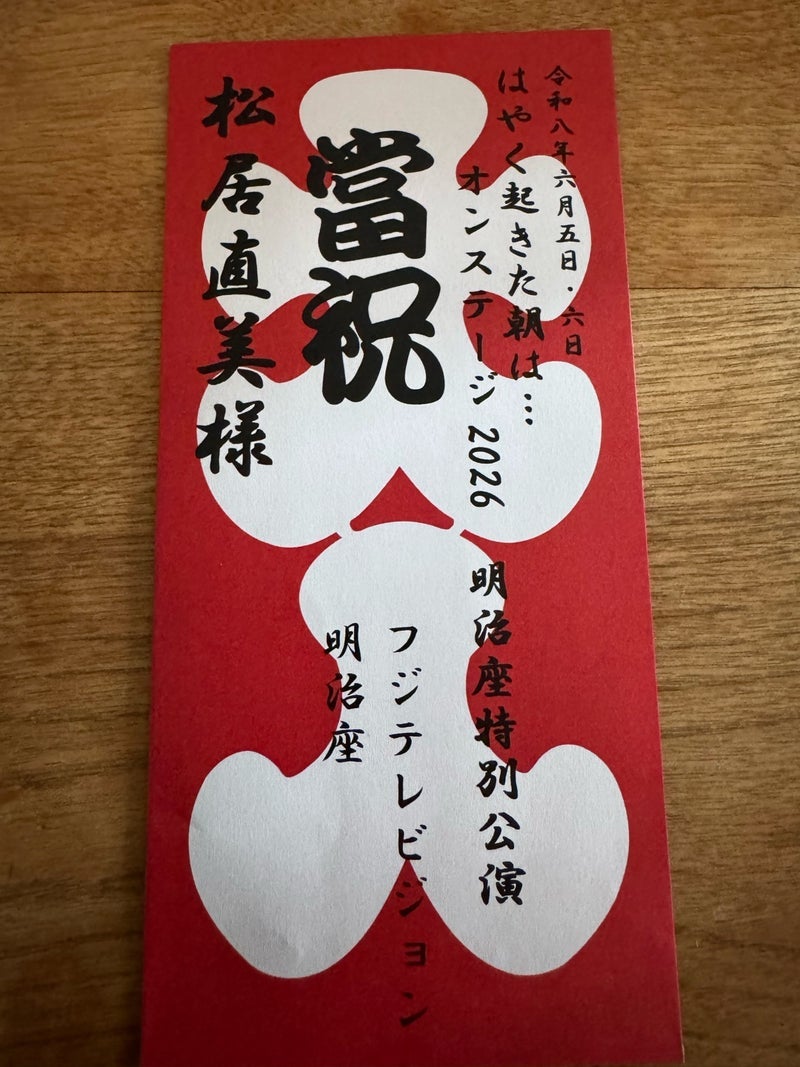 令和八年六月五日・六日
はやく起きた朝は…
オンステージ 2026
明治座特別公演
フジテレビジョン
明治座
當祝
松居直美様